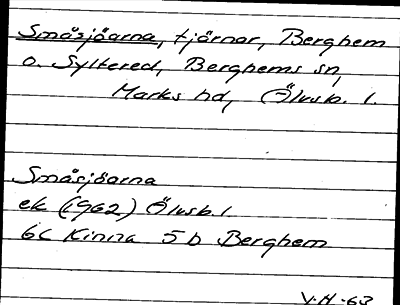 Småsjöarna, tjärnar, Berghem
o. Syltered, Berghems sn,
Marks hd, Älvsb. l.
Småsjöarna
ek (1962) Älvsb. l
6C Kinna 5 b Berghem
V.H. -63